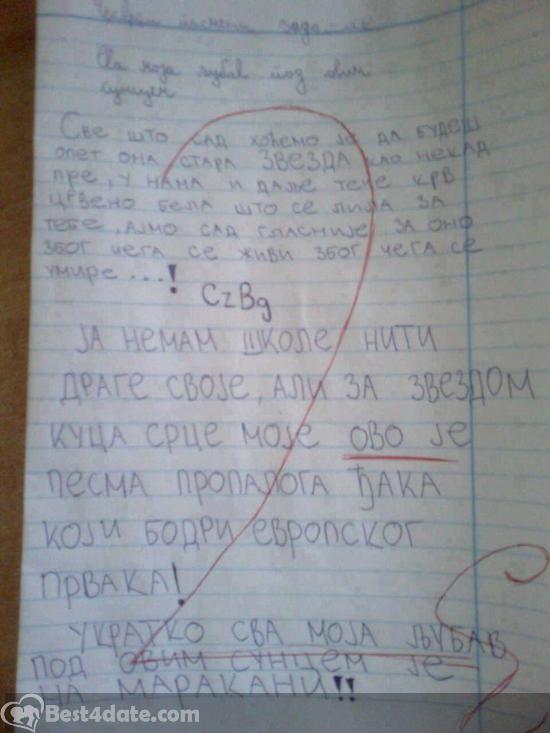 Четврти писмени задатак
Сва моја љубав под овим
сунцем
Све што сад хоћемо је да будеш
опет она стара ЗВЕЗДА као некад
пре, у нама и даље тече крв
црвено бела што се лила за
тебе, ајмо сад гласније за оно
због чега се живи због чега се
умире ...!
CzBg
ЈА НЕМАМ ШКОЛЕ НИТИ
ДРАГЕ СВОЈЕ, АЛИ ЗА ЗВЕЗДОМ
КУЦА СРЦЕ МОЈЕ ОВО ЈЕ
ПЕСМА ПРОПАЛОГА ЂАКА
КОЈИ БОДРИ ЕВРОПСКОГ
ПРВАКА!
УКРАТКО СВА МОЈА ЉУБАВ
ПОД ОВИМ СУНЦЕМ ЈЕ
НА МАРАКАНИ!!
Best4date.com